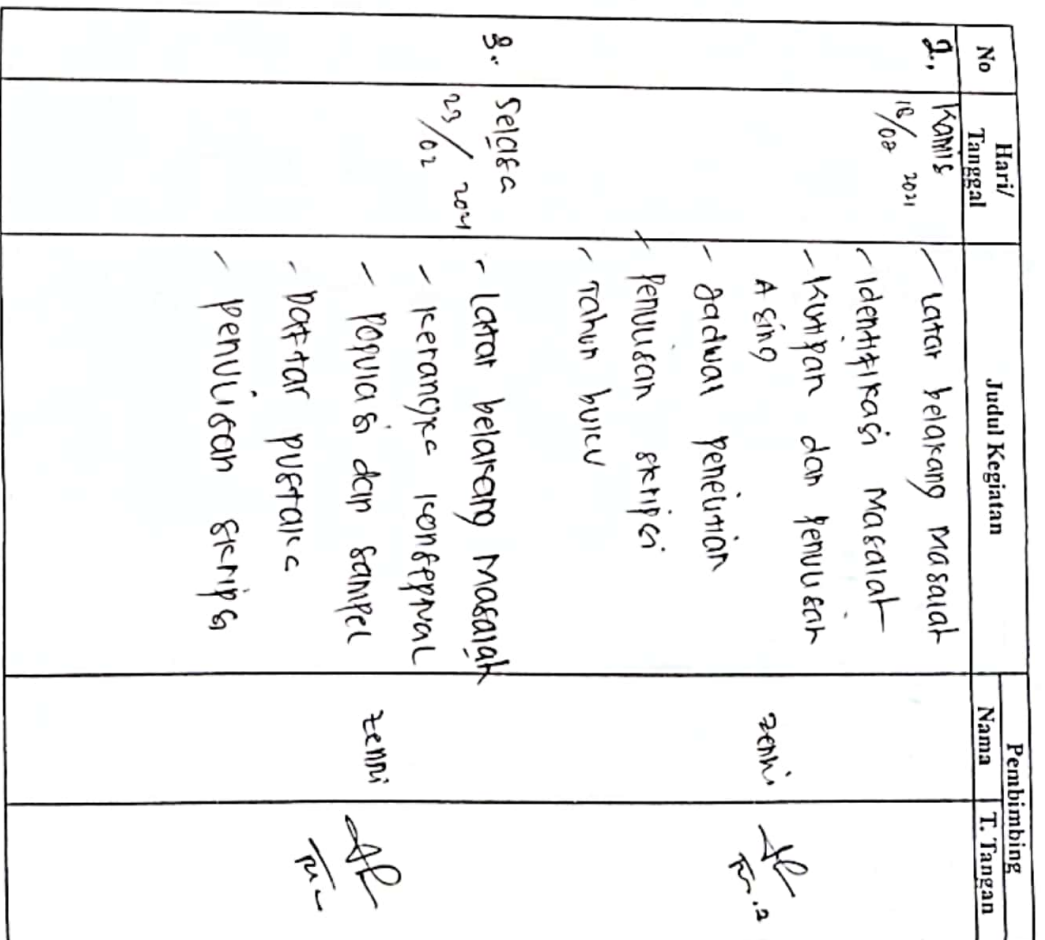 No
Hari/
Tanggal
Judul Kegiatan
Pembimbing
Nama
T. Tangan
2.
Kamis
18/02 2021
- Latar belakang masalah
- Identifikasi Masalah
- Kutipan dan penulisan
Asing
- Jadwal penelitian
- Penulisan skripsi
- Tahun buku
zenni
3.
Selasa
23/02 2021
- Latar belakang Masalah
- Kerangka konseptual
- Populasi dan sampel
- Daftar pustaka
- penulisan skripsi
zenni